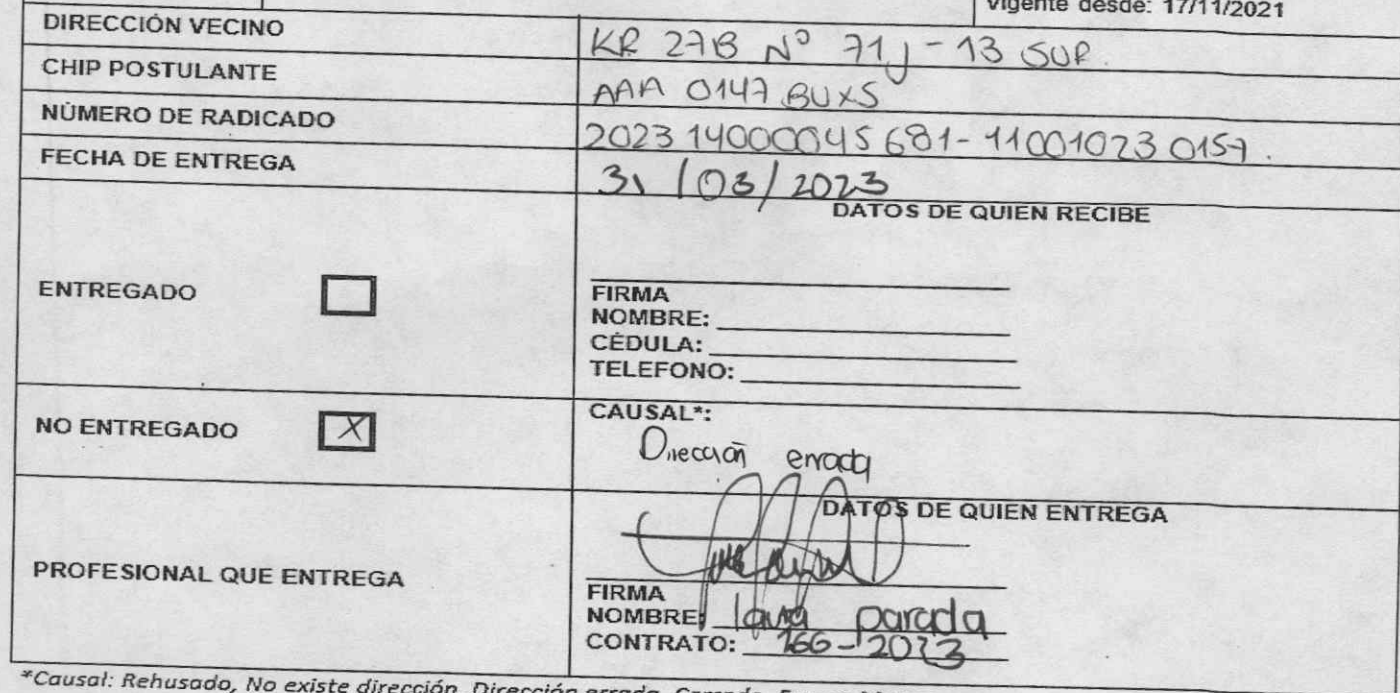 Vigente desde: 17/11/2021
DIRECCIÓN VECINO
KR 27B N° 71J - 13 SUR.
CHIP POSTULANTE
AAA 0147 BUXS
NÚMERO DE RADICADO
2023 14000045 681 - 110010230157.
FECHA DE ENTREGA
31 / 03 / 2023
DATOS DE QUIEN RECIBE
ENTREGADO
FIRMA
NOMBRE:
CÉDULA:
TELEFONO:
NO ENTREGADO X
CAUSAL*:
Dirección errada
DATOS DE QUIEN ENTREGA
PROFESIONAL QUE ENTREGA
FIRMA
NOMBRE: laura parada
CONTRATO: 166-2023
*Causal: Rehusado, No existe dirección, Dirección errada,